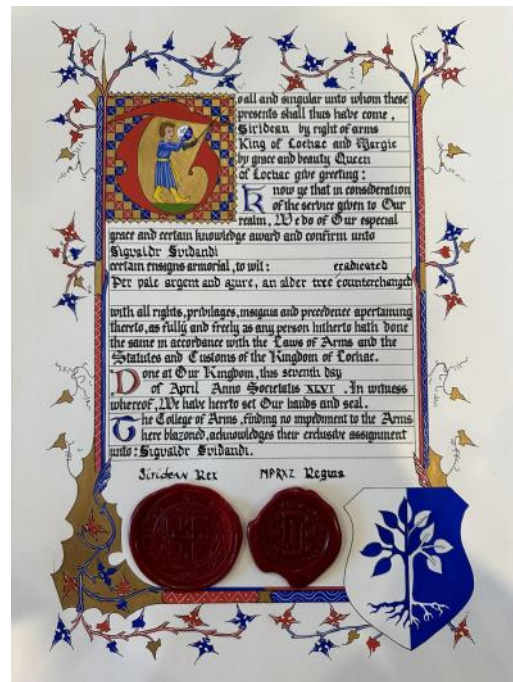 To all and singular unto whom these
presents shall thus have come,
Siridean by right of arms
King of Lochac and Margie
by grace and beauty Queen
of Lochac give greeting:
Know ye that in consideration
of the service given to Our
realm, We do of Our especial
grace and certain knowledge award and confirm unto
Sigvaldr Svidandi
certain ensigns armorial, to wit: eradicated
Per pale argent and azure, an alder tree counterchanged
with all rights, privilages, insignia and precedence apertaining
thereto, as fully and freely as any person hitherto hath done
the same in accordance with the Laws of Arms and the
Statutes and Customs of the Kingdom of Lochac.
Done at Our Kingdom, this seventh day
of April Anno Societatis XLVI. In witness
whereof, We have hereto set Our hands and seal.
The College of Arms, finding no impediment to the Arms
here blazoned, acknowledges their exclusive assignment
unto: Sigvaldr Svidandi.
Siridean Rex Regina